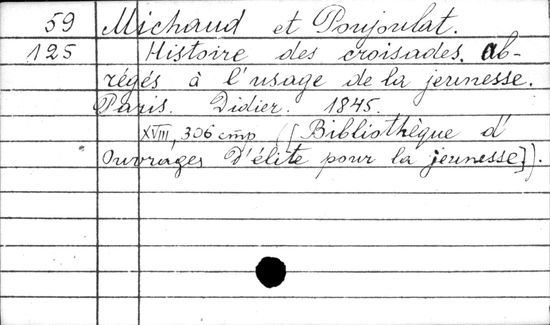 59 Michaud et Poujoulat.
125 Histoire des croisades. ab-
régés à l'usage de la jeunesse.
Paris. Didier. 1845.
XVIII, 306 cmp ([Bibliothèque d'
Ouvrages d'élite pour la jeunesse]).